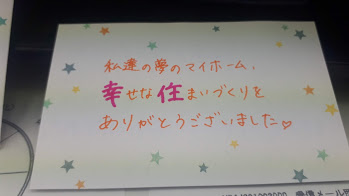 私達の夢のマイホーム、
幸せな住まいづくりを
ありがとうございました♡